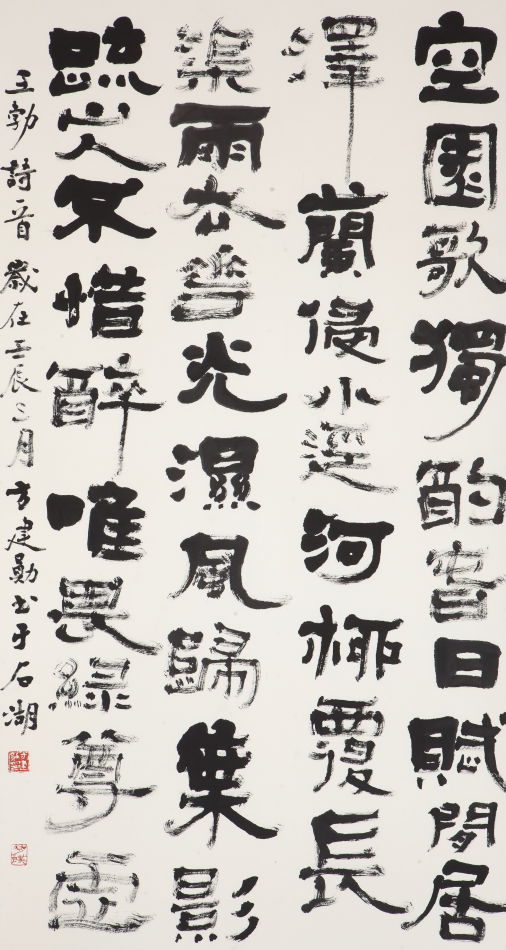 空園歌獨酌春日賦閒居
澤蘭侵小逕河柳覆長
渠雨去華光濕風歸葉影
疏山人不惜醉唯畏綠尊虛
王勃詩一首 歲在壬辰三月 方建勛書于石湖